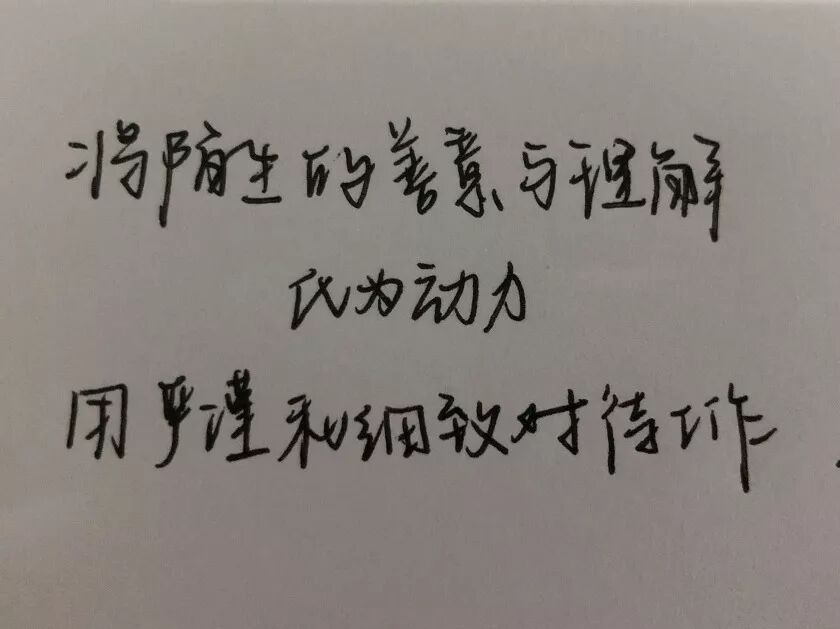 将陌生的善意与理解
化为动力
用严谨和细致对待工作.